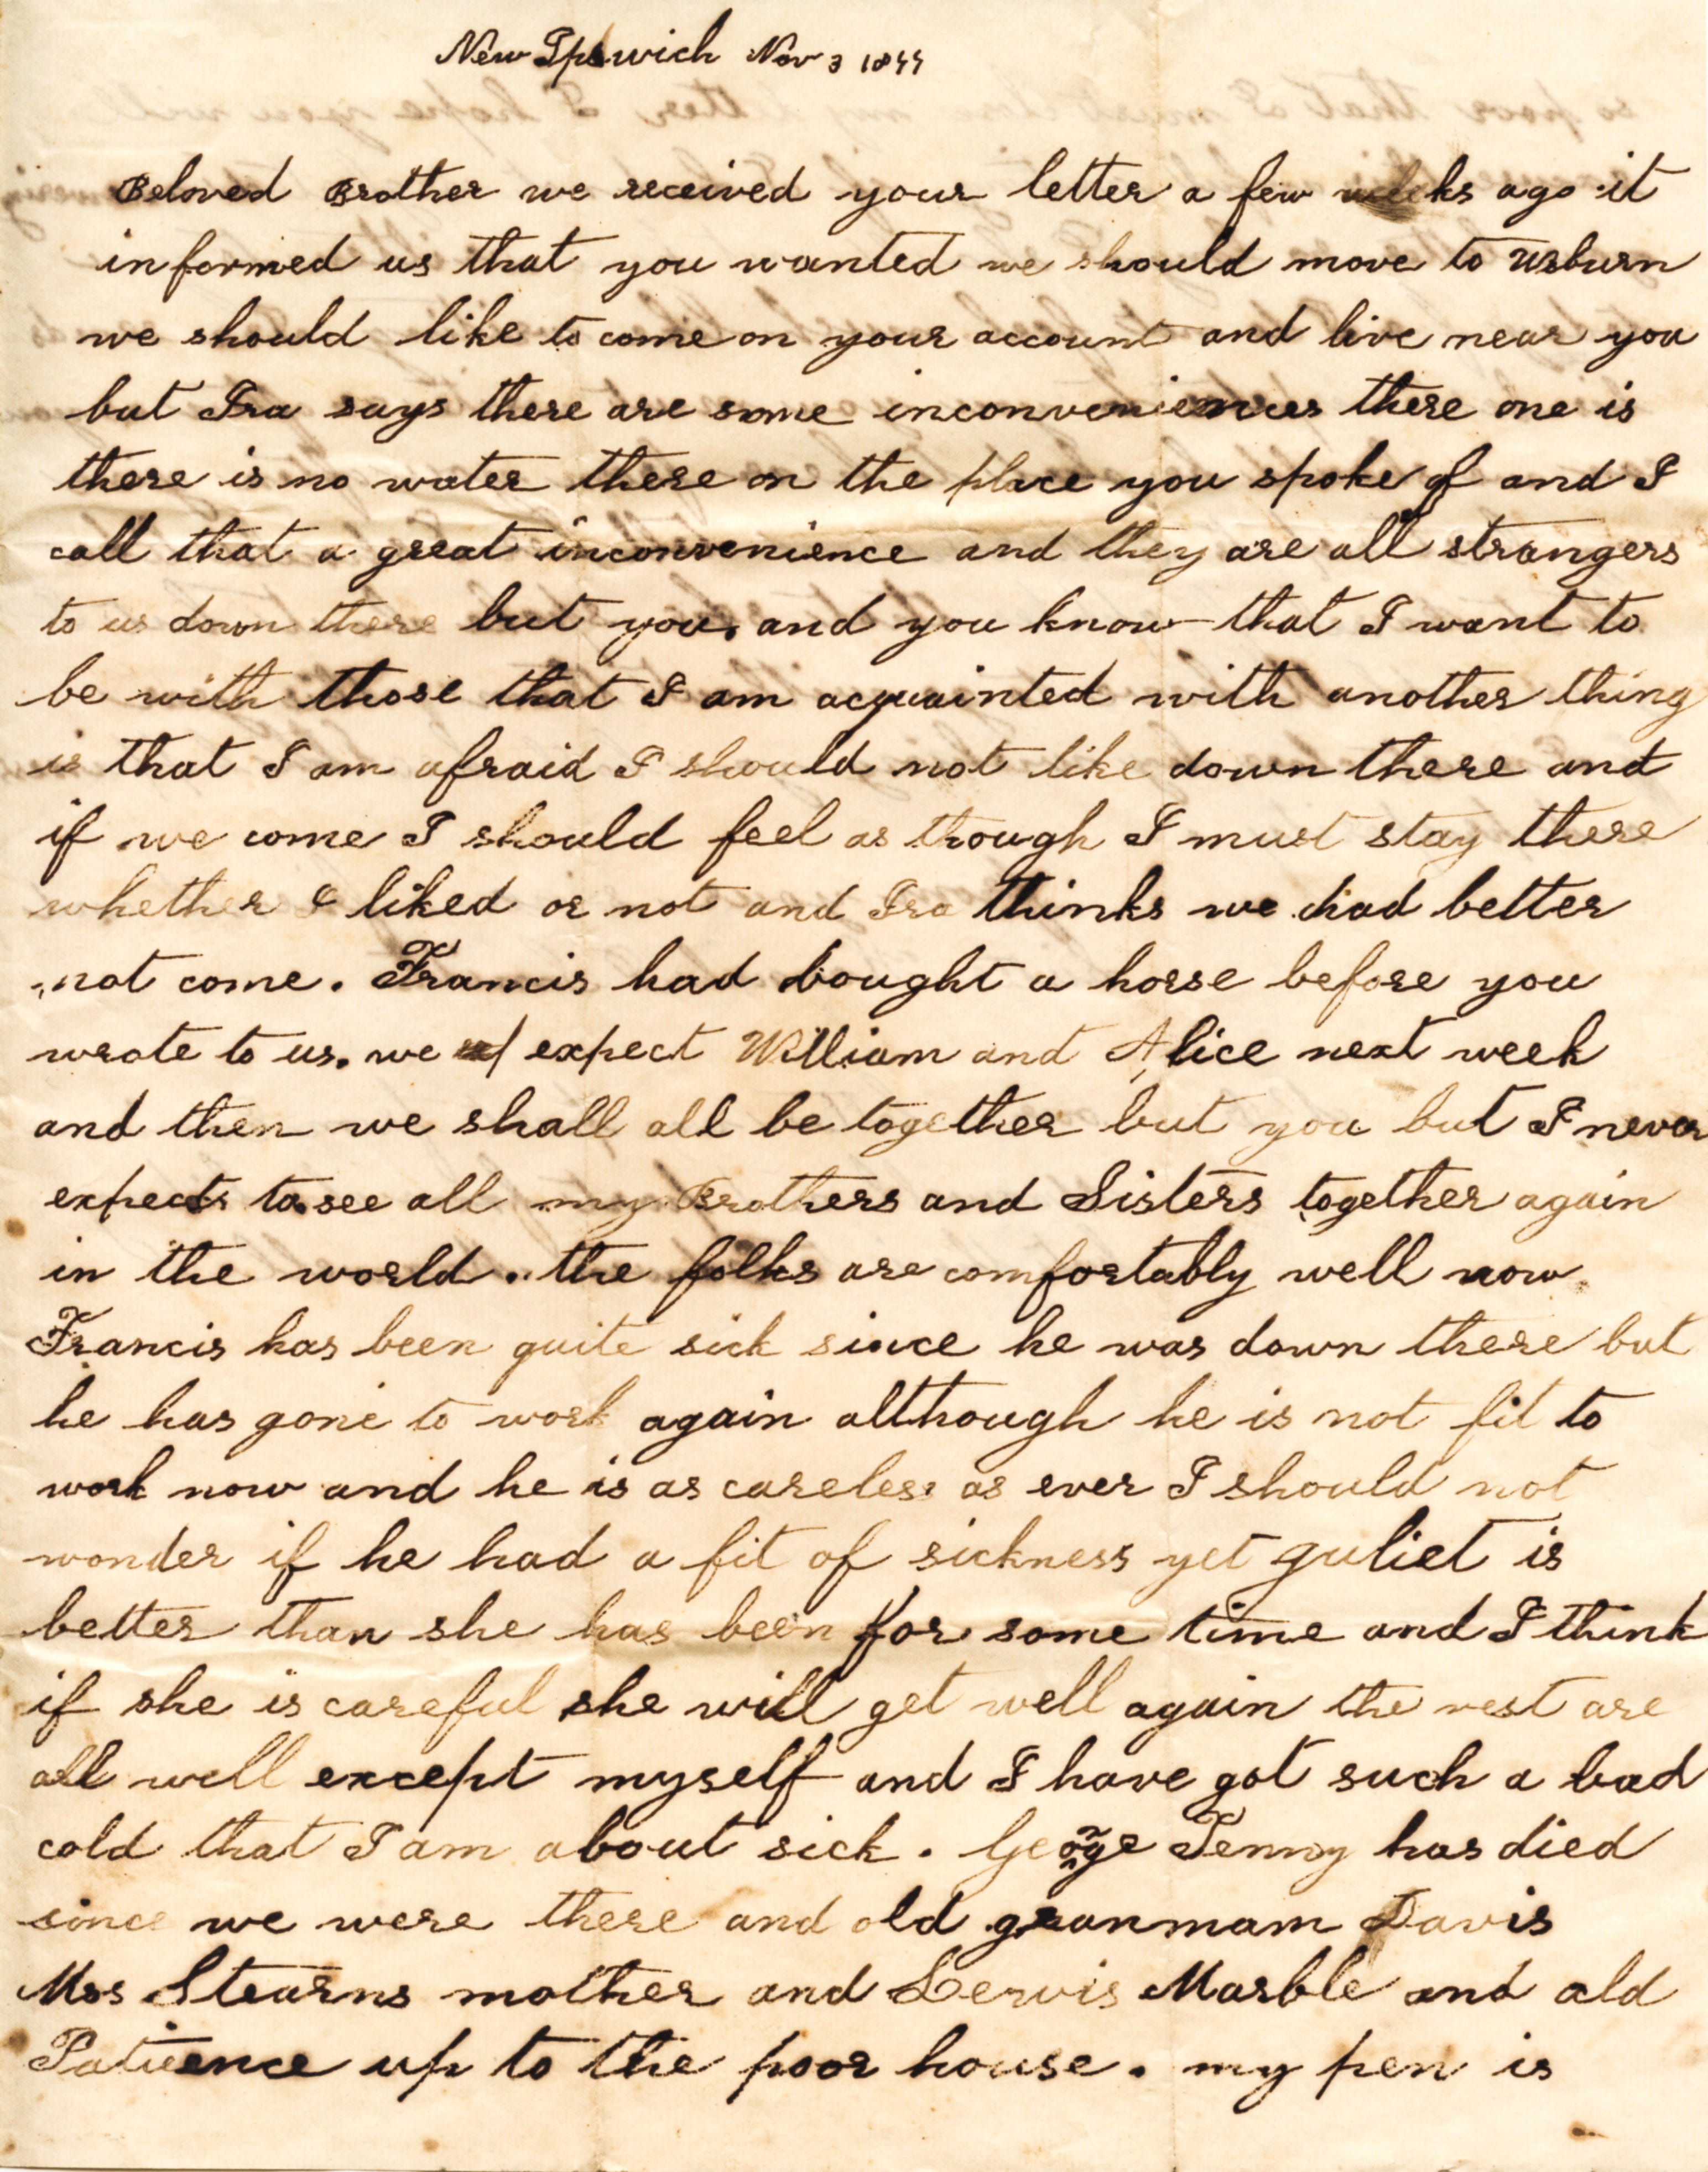 New Ipswich Nov 3 1844
Beloved Brother we received your letter a few weeks ago it
informed us that you wanted we should move to
we should like to come on your account and live near you
but Ira says there are some inconveniences there one is
there is no water there on the place you spoke of and I
call that a great inconvenience and they are all strangers
to us down there but you. and you know that I want to
be with those that I am acquainted with another thing
is that I am afraid I should not like down there and
if we come I should feel as through I must stay there
whether I liked or not and Ira thinks we had better
not come. Francis had bought a horse before you
wrote to us. we expect William and Alice next week
and then we shall all be together but you but I never
expects to see all my Brothers and Sisters together again
in the world. the folks are comfortably well now
Francis has been quite sick since he was down there but
he has gone to work again although he is not fit to
work now and he is as careless as ever I should not
wonder if he had a fit of sickness yet Juliet is
better than she has been for some time and I think
if she is careful she will get well again the rest are
all well except myself and I have got such a bad
cold that I am about sick. George Tenny has died
since we were there and old granmam Davis
Mrs Stearns mother and Lewis Marble and old
Patience up to the poor house. my pen is